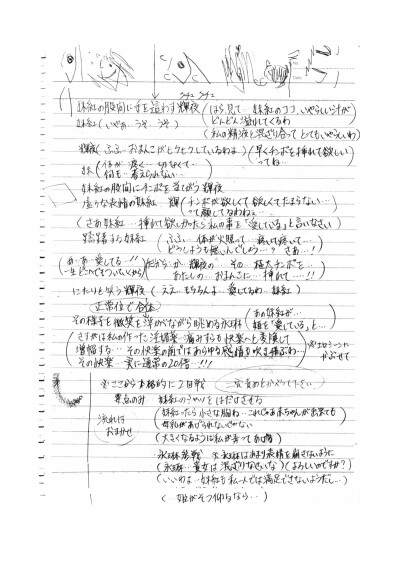 グチュ グチュ
妹紅の股間に手を這わす輝夜(ほら見て…妹紅のココ、いやらしい汁が
どんどん溢れてくるわ
妹紅(いやぁ…うそ…うそ
(私の精液と混ざり合って とてもいやらしいわ
輝夜(ふふ…おまんこがヒクヒクしているわよ)(早くチンポを挿れて欲しい
ってね…
妹(体が…熱く…切なくて…
何も…考えられない…
妹紅の股間にチンポを当てがう輝夜
虚ろな表情の妹紅 輝(チンポが欲しくて欲しくてたまらない…
って顔してるわねぇ…
(さあ妹紅…挿れて欲しかったら私の事を"愛している"と言いなさい
躊躇する妹紅 (ふふ…体が火照って…疼いて疼いて…
どうしようも無いんでしょう…?さあ…!
(あ…愛してる…!!
(だから…か…輝夜の…その…極太チンポを…
わたしの…おまんこに…挿れて……!!
にたりと笑う輝夜(ええ…もちろんよ…愛してるわ…妹紅)
正常位で合体
その様子を微笑を浮かべながら眺める永琳(あの妹紅が…
姫を"愛している"と…
(さすがは私の作った淫媚薬…痛みすらも快楽へと変換して
増幅する…その快楽の前ではあらゆる感情を吹き飛ばすわ…
その快楽…実に通常の20倍…!!!
かぶせて
※ここから本格的に2回戦
妹紅のシャツをはだけさせる
流れは
おまかせ
(妹紅ったら小さな胸ね…これじゃあ赤ちゃんが出来ても
母乳があげられないじゃない
(大きくなるように私が吸ってあげる
※永琳はあまり表情を崩さないように
(永琳…貴女は…混ざりなさいな)(よろしいのですか?)
(いいわよ…妹紅も私一人では満足できないようだし…)
(…姫がそう仰るなら…)